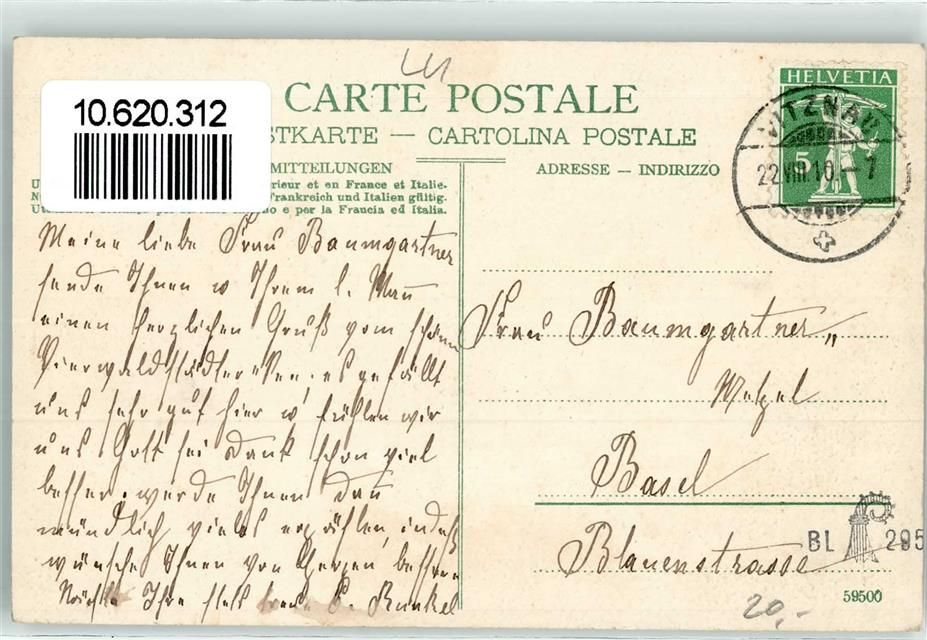 10.620.312
CARTE POSTALE
STKARTE — CARTOLINA POSTALE
MITTEILUNGEN
ADRESSE — INDIRIZZO
rieur et en France et Italie.
Frankreich und Italien gültig.
o e per la Francia ed Italia.
HELVETIA
5
VITZNAU
22.VIII.10.–7
Meine liebe Frau Baumgartner
sende Ihnen u Ihrem l. Mann
einen herzlichen Gruß vom schönen
Vierwaldstädtersee. es gefällt
uns sehr gut hier u fühlen wir
uns Gott sei Dank schon viel
besser. werde Ihnen dann
mündlich vieles erzählen, indeß
wünsche Ihnen von Herzen bessere
Ihre stets treue Runkel
Frau Baumgartner,,
Metzel
Basel
Blauenstrasse
BL 295
59500
20.-